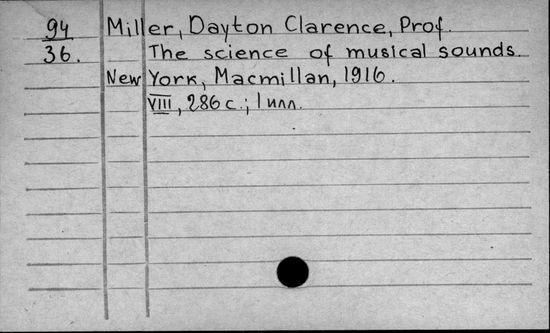 94 Miller, Dayton Clarence, Prof.
36. The science of musical sounds.
New York, Macmillan, 1916.
VIII, 286 с.; 1 илл.